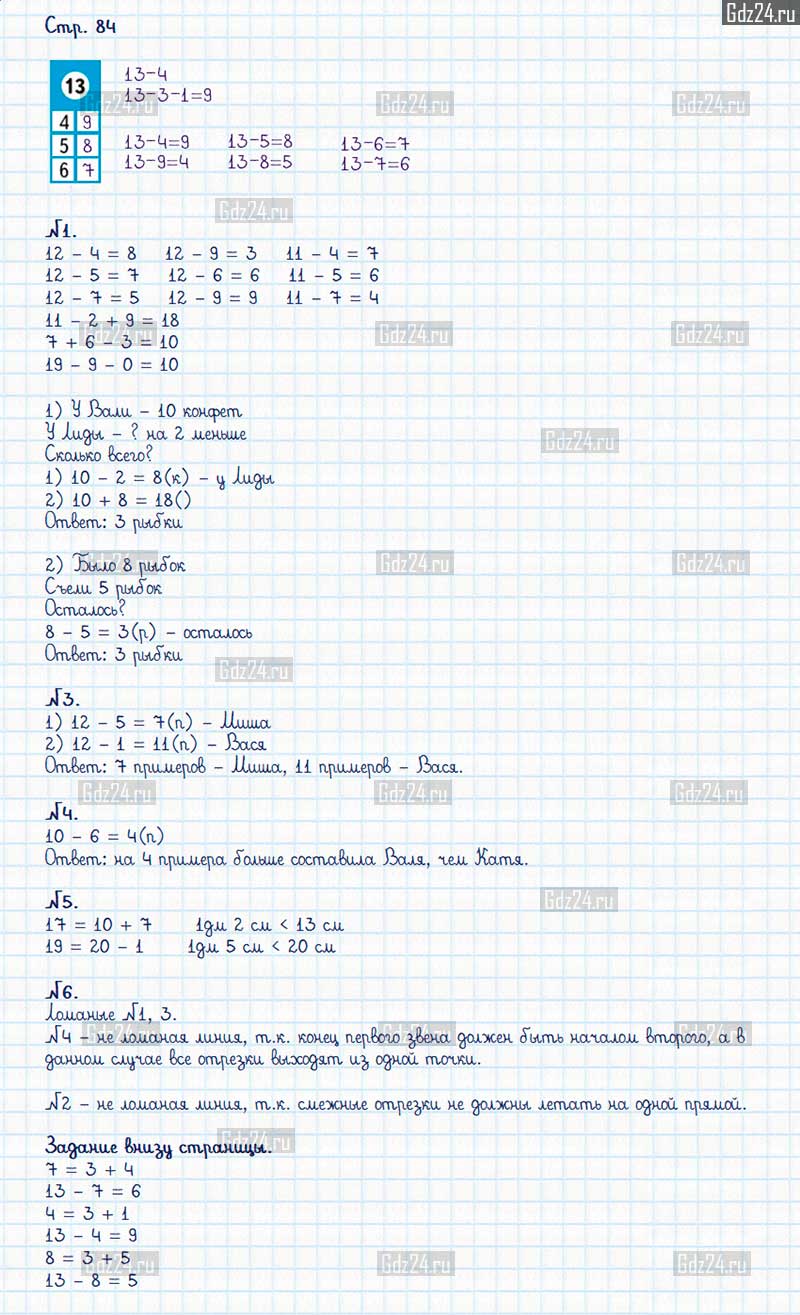 Gdz24.ru
Стр. 84
13
4 9
5 8
6 7
13-4
13-3-1=9
13-4=9 13-5=8 13-6=7
13-9=4 13-8=5 13-7=6
№1.
12 - 4 = 8 12 - 9 = 3 11 - 4 = 7
12 - 5 = 7 12 - 6 = 6 11 - 5 = 6
12 - 7 = 5 12 - 9 = 9 11 - 7 = 4
11 - 2 + 9 = 18
7 + 6 - 3 = 10
19 - 9 - 0 = 10
1) У Вали - 10 конфет
У Лиды - ? на 2 меньше
Сколько всего?
1) 10 - 2 = 8(к) - у Лиды
2) 10 + 8 = 18()
Ответ: 3 рыбки
2) Было 8 рыбок
Съели 5 рыбок
Осталось?
8 - 5 = 3(р) - осталось
Ответ: 3 рыбки
№3.
1) 12 - 5 = 7(п) - Миша
2) 12 - 1 = 11(п) - Вася
Ответ: 7 примеров - Миша, 11 примеров - Вася.
№4.
10 - 6 = 4(п)
Ответ: на 4 примера больше составила Валя, чем Катя.
№5.
17 = 10 + 7 1дм 2 см < 13 см
19 = 20 - 1 1дм 5 см < 20 см
№6.
Ломаные №1, 3.
№4 - не ломаная линия, т.к. конец первого звена должен быть началом второго, а в
данном случае все отрезки выходят из одной точки.
№2 - не ломаная линия, т.к. смежные отрезки не должны летать на одной прямой.
Задание внизу страницы.
7 = 3 + 4
13 - 7 = 6
4 = 3 + 1
13 - 4 = 9
8 = 3 + 5
13 - 8 = 5